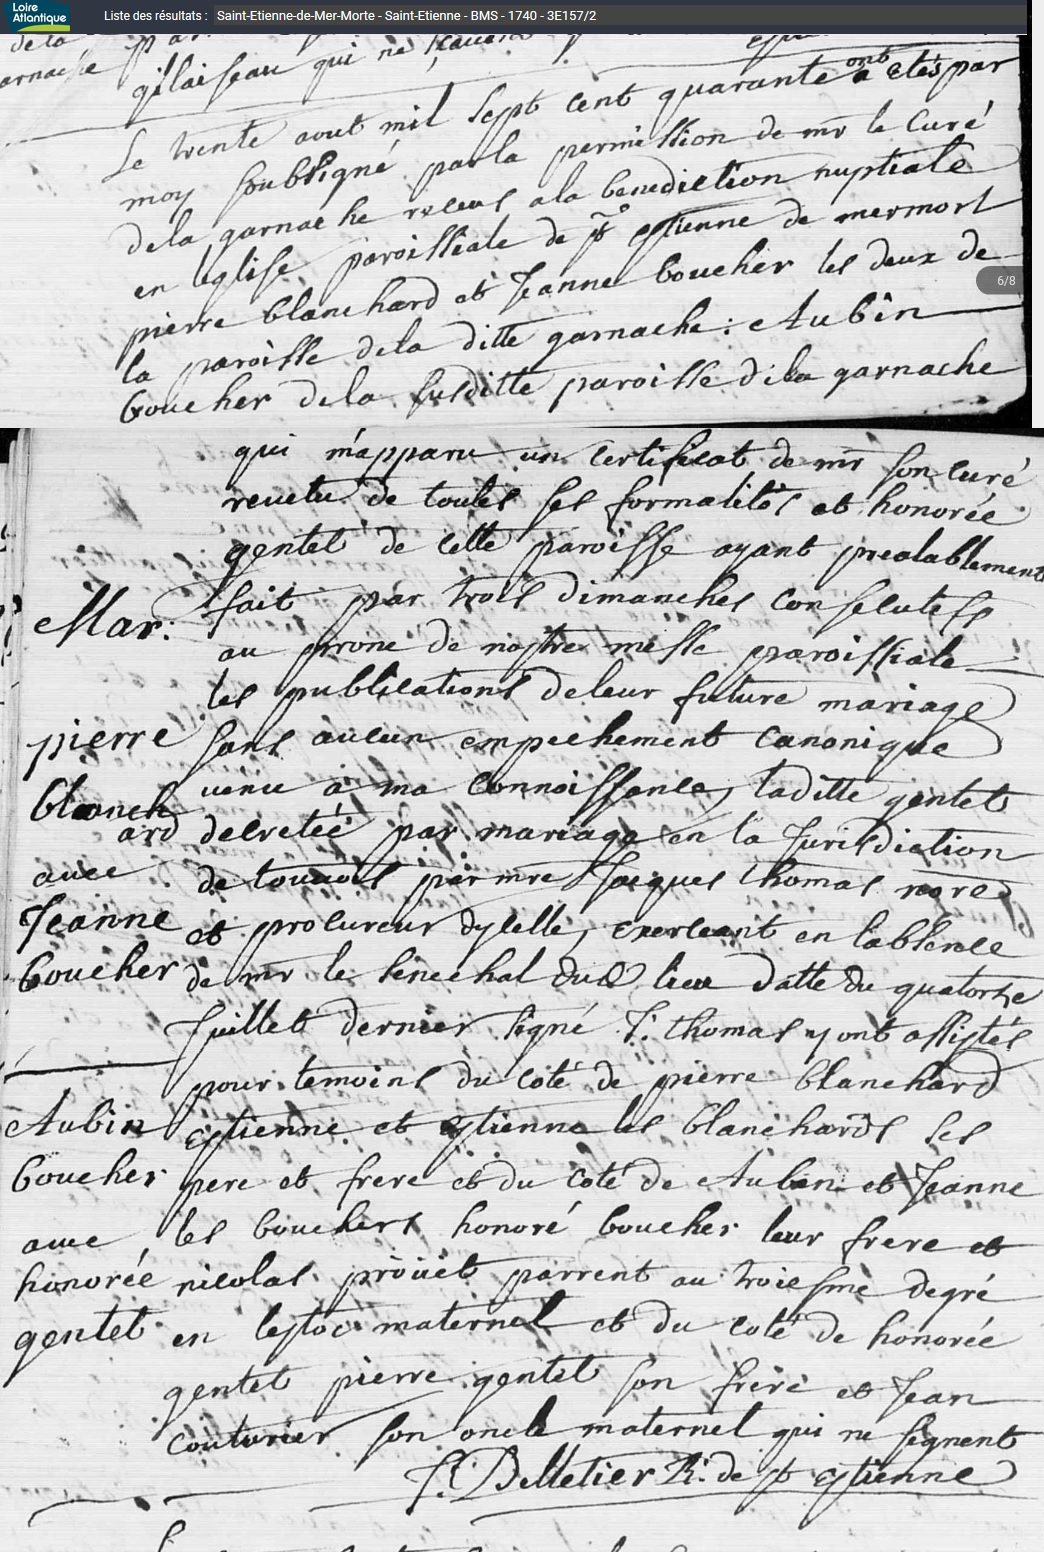 Loire Atlantique
Liste des résultats : Saint-Etienne-de-Mer-Morte - Saint-Etienne - BMS - 1740 - 3E157/2
de la par
garnache gilaiseau qui ne
Le trente aout mil sept cent quarante ont etés par
moy soubsigné par la permission de mr le Curé
dela garnache receus ala benediction nuptiale
en leglise paroissiale de st estienne de mermort
pierre blanchard et Jeanne boucher les deux de
la paroisse dela ditte garnache : Aubin
boucher dela susditte paroisse dela garnache
6/8
qui m'apparu un certificat de mr son curé
revetu de toutes ses formalités et honorée
gentet de cette paroisse ayant prealablement
fait par trois dimanches consecutifs
au prone de nostre messe paroissiale
les publications de leur future mariage
sans aucun empechement canonique
venu à ma connoissance, laditte gentet
decretée par mariage en la Jurisdiction
de touvois par mre Jacques thomas nore
et procureur dycelle, exerceant en labsence
de mr le senechal dud lieu datte du quatorze
Juillet dernier signé J: thomas y ont assistés
pour temoins du coté de pierre blanchard
estienne et estienne les blanchards ses
pere et frere et du coté de Aubin et Jeanne
les bouchers honoré boucher leur frere et
nicolas proüet parrent au troiesme degré
en lestoc maternel et du coté de honorée
gentet pierre gentet son frere et Jean
couturier son oncle maternel qui ne signent
J. Pelletier R. de st estienne
Mar:
pierre
blanch
ard
avec
Jeanne
boucher
Aubin
boucher
avec
honorée
gentet